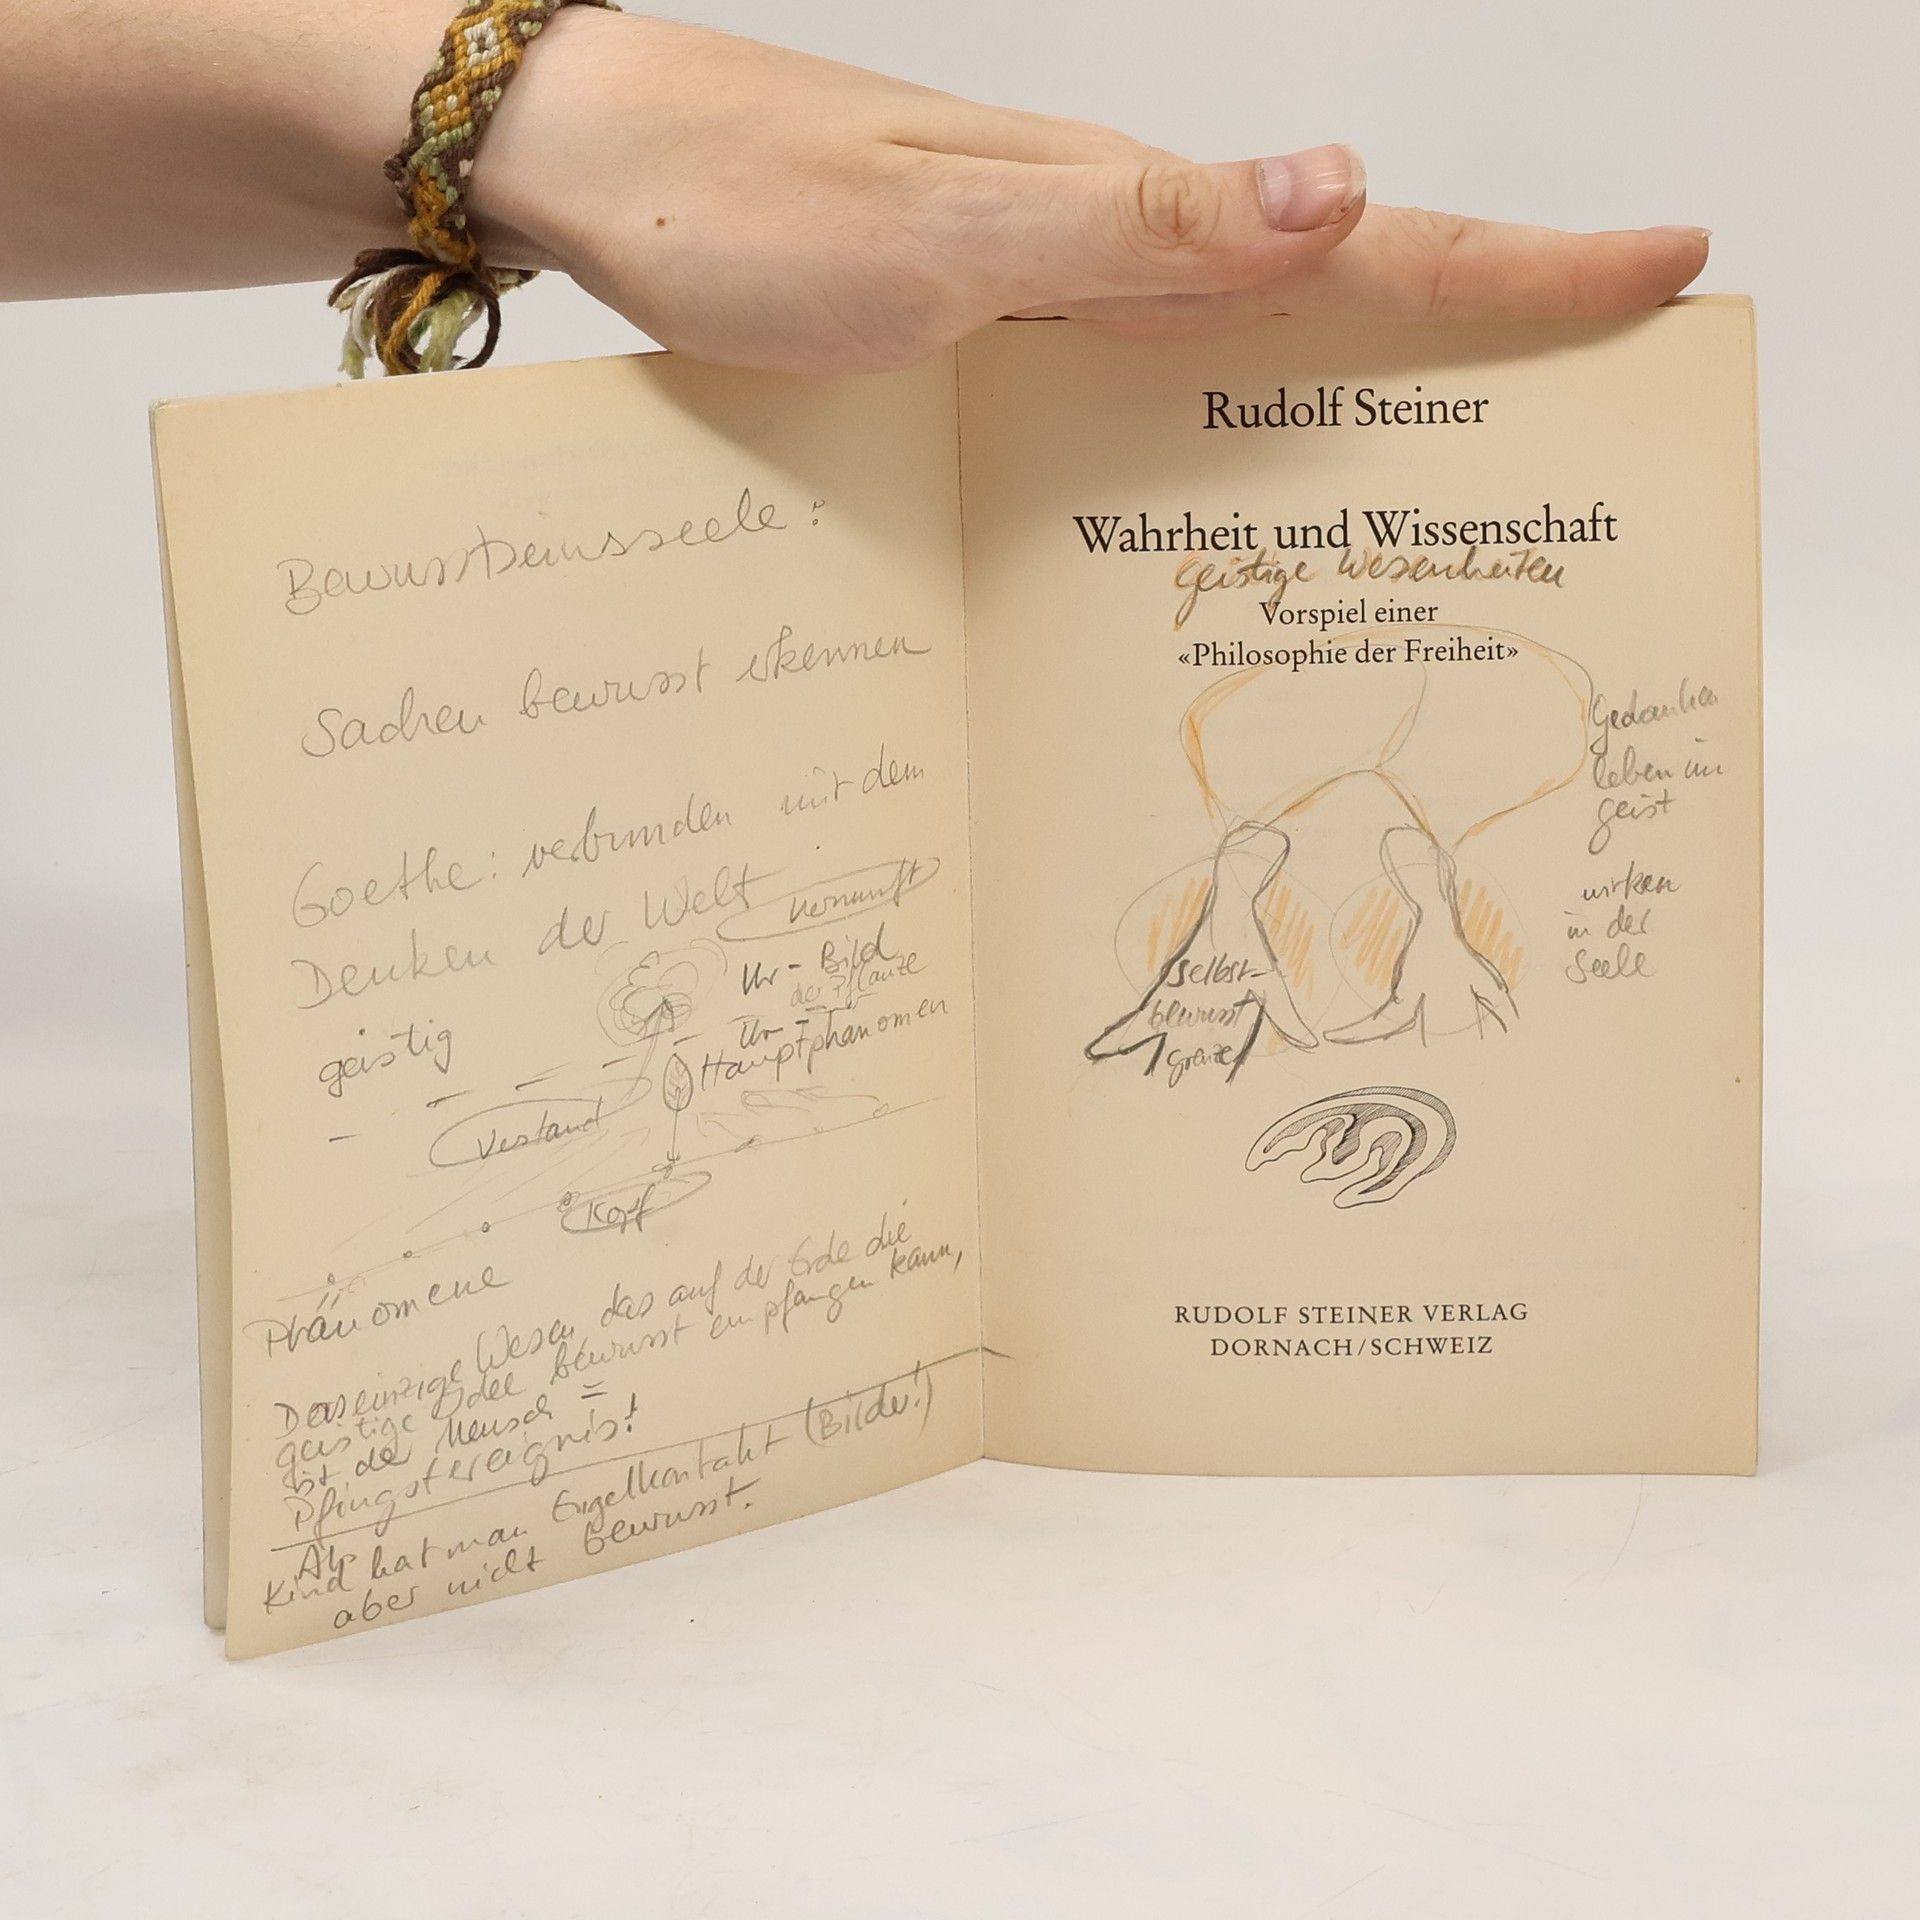 Bewusstseinsseele:
Sachen bewusst erkennen
Goethe: verbunden mit dem
Denken der Welt
Vernunft
geistig
Ur-Bild
der Pflanze
Ur-
Hauptphänomen
Verstand
Kopf
Phänomene
Das einzige Wesen das auf der Erde die
geistige Idee bewusst empfangen kann,
ist der Mensch =
Pfingstereignis!
Als
Kind hat man Engelkontakt (Bilder!)
aber nicht bewusst.
Rudolf Steiner
Wahrheit und Wissenschaft
Geistige Wesenheiten
Vorspiel einer
«Philosophie der Freiheit»
Gedanken
leben im
Geist
wirken
in der
Seele
Selbst-
bewusst
grenze
RUDOLF STEINER VERLAG
DORNACH/SCHWEIZ